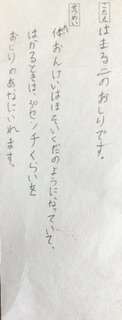 は まる二のおしりです。
せつめい
体おんけいはほそいくだのようになっていて、
はかるときは、3センチくらいを
おしりのあなにいれます。